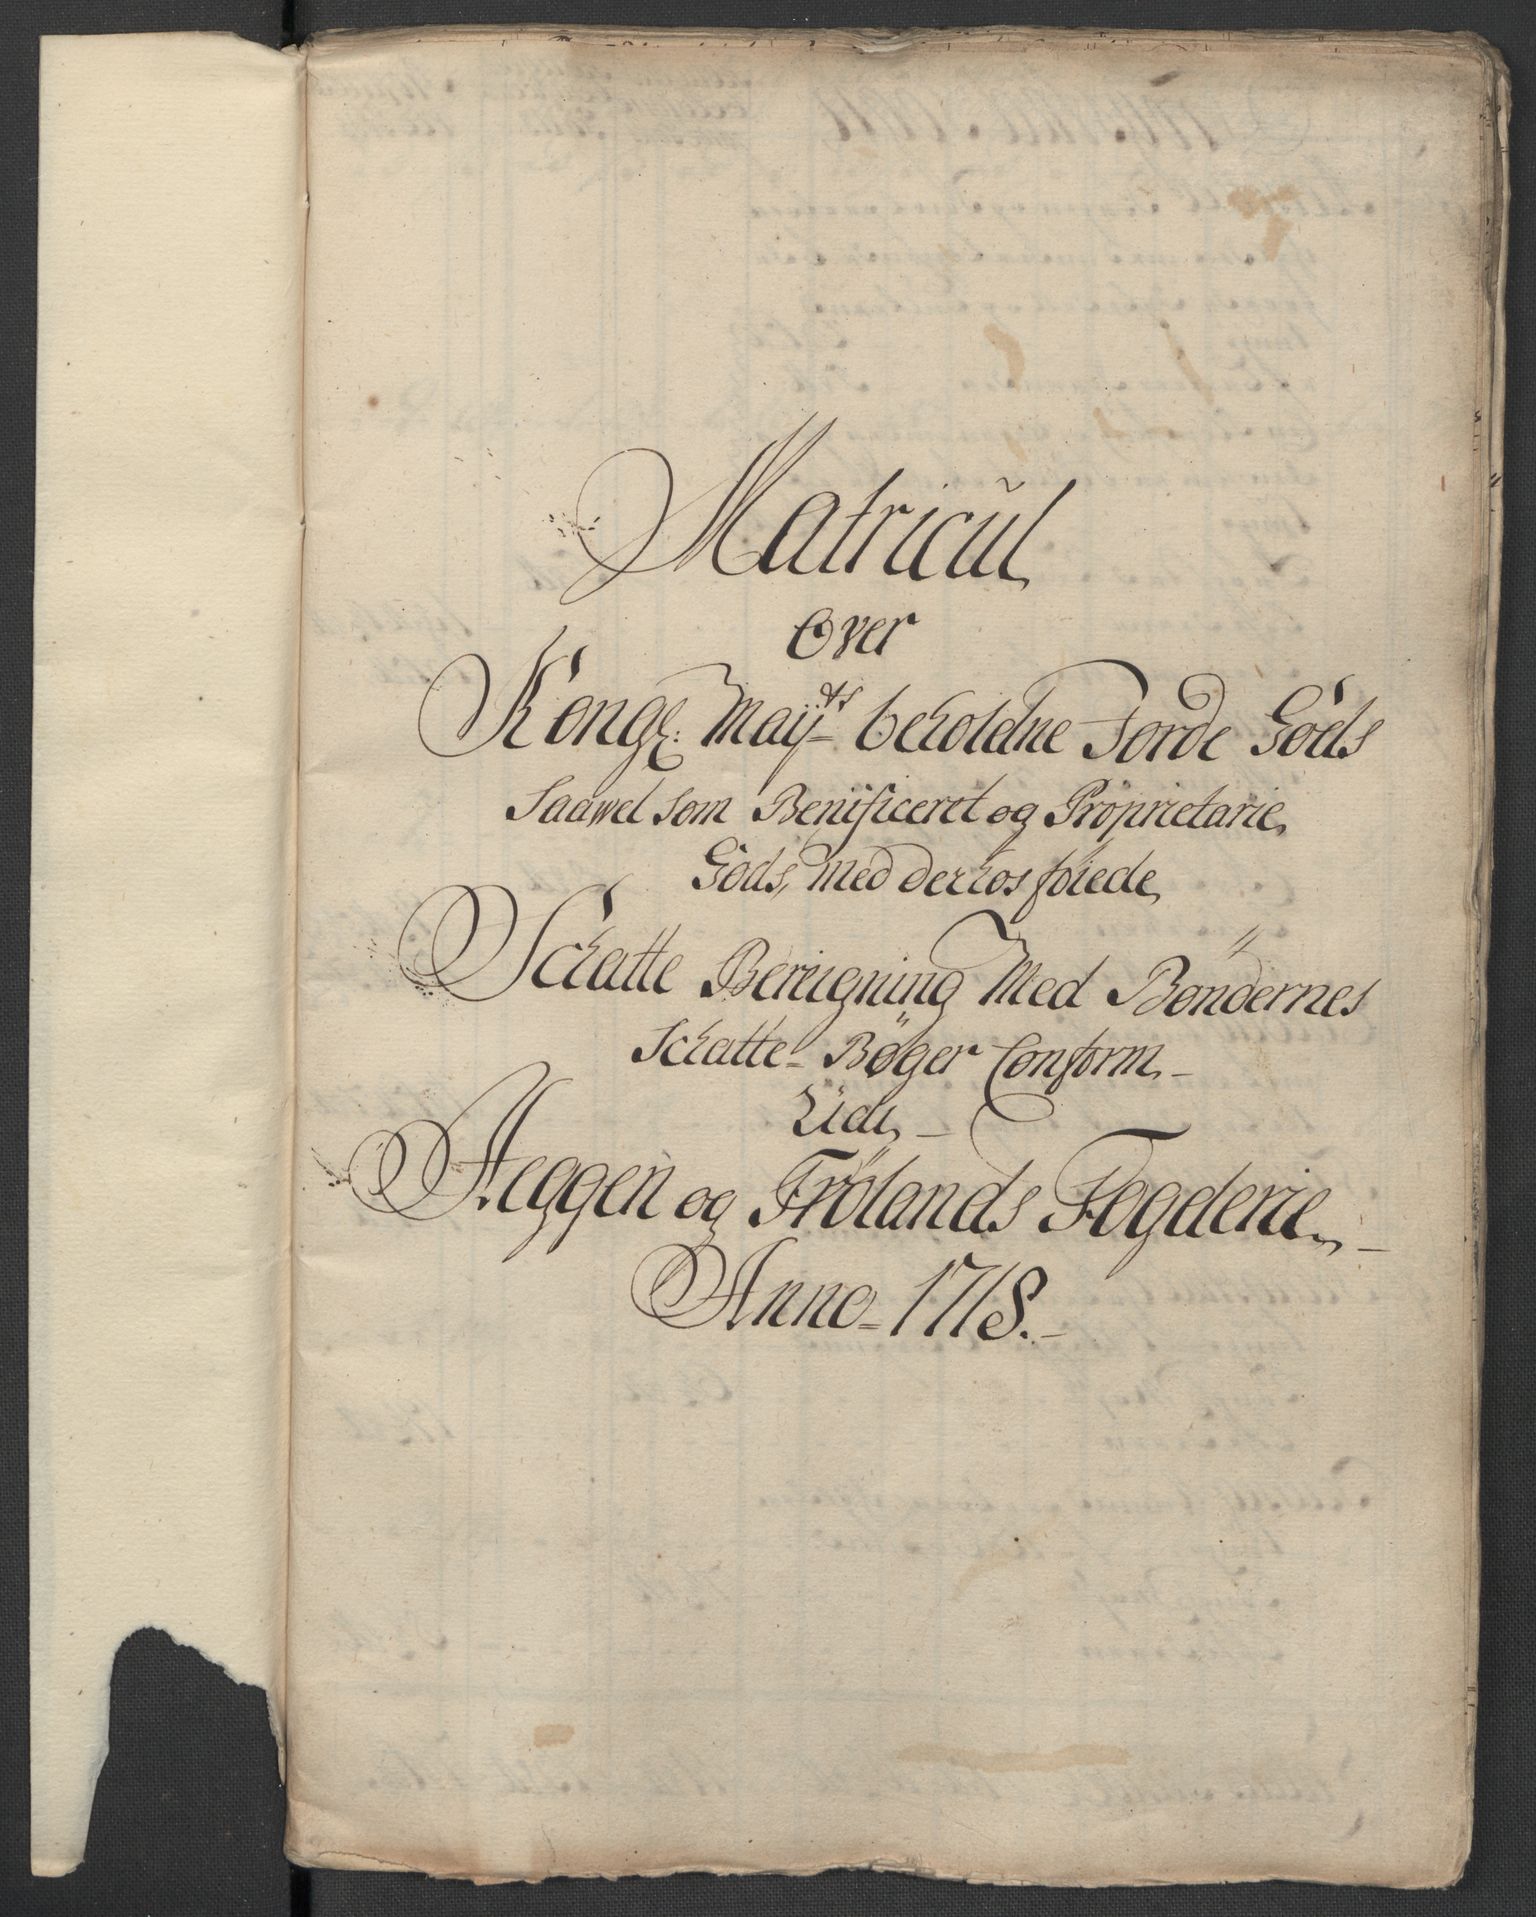 Matricul
Over
Kongl: Mayts beholdne Jorde Gods
Saawel som Benificeret og Proprietarie
Gods, med derhos føiede
Schatte Bereigning Med Bøndernes
Schatte- Bøger Conform
Udi
Heggen og Frølands Fogderie
Anno 1718.